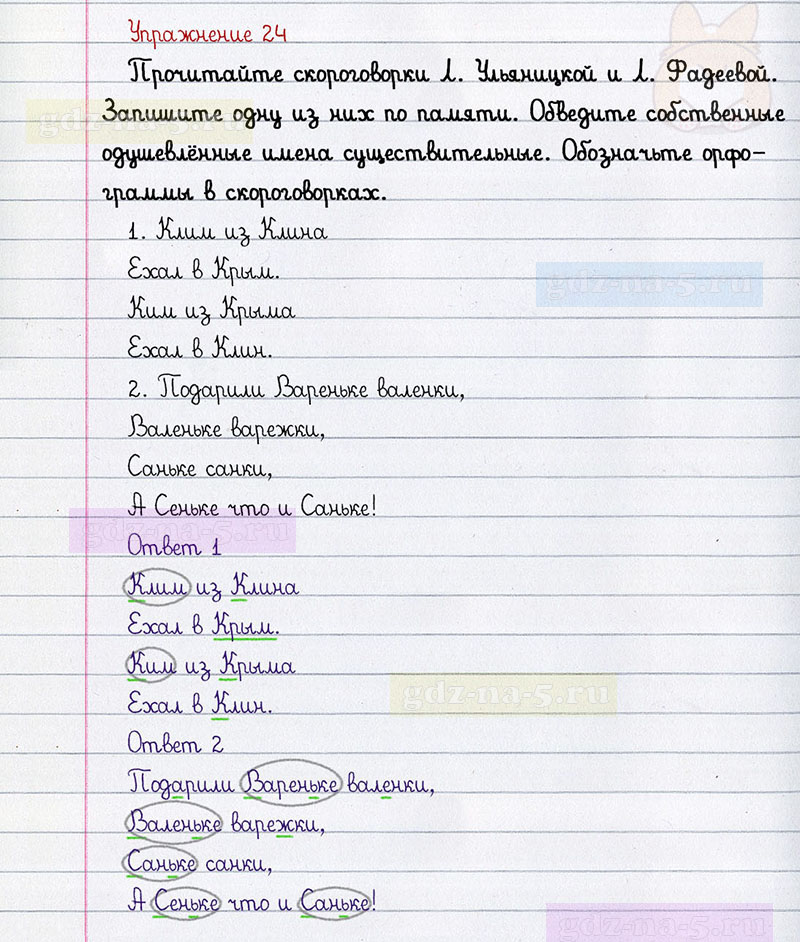 Упражнение 24
Прочитайте скороговорки Л. Ульяницкой и Л. Фадеевой.
Запишите одну из них по памяти. Обведите собственные
одушевлённые имена существительные. Обозначьте орфо-
граммы в скороговорках.
gdz-na-5.ru
1. Клим из Клина
Ехал в Крым.
gdz-na-5.ru
Ким из Крыма
Ехал в Клин.
2. Подарили Вареньке валенки,
Валеньке варежки,
Саньке санки,
А Сеньке что и Саньке!
gdz-na-5.ru
Ответ 1
Клим из Клина
Ехал в Крым.
Ким из Крыма
gdz-na-5.ru
Ехал в Клин.
Ответ 2
Подарили Вареньке валенки,
Валеньке варежки,
Саньке санки,
А Сеньке что и Саньке!
gdz-na-5.ru